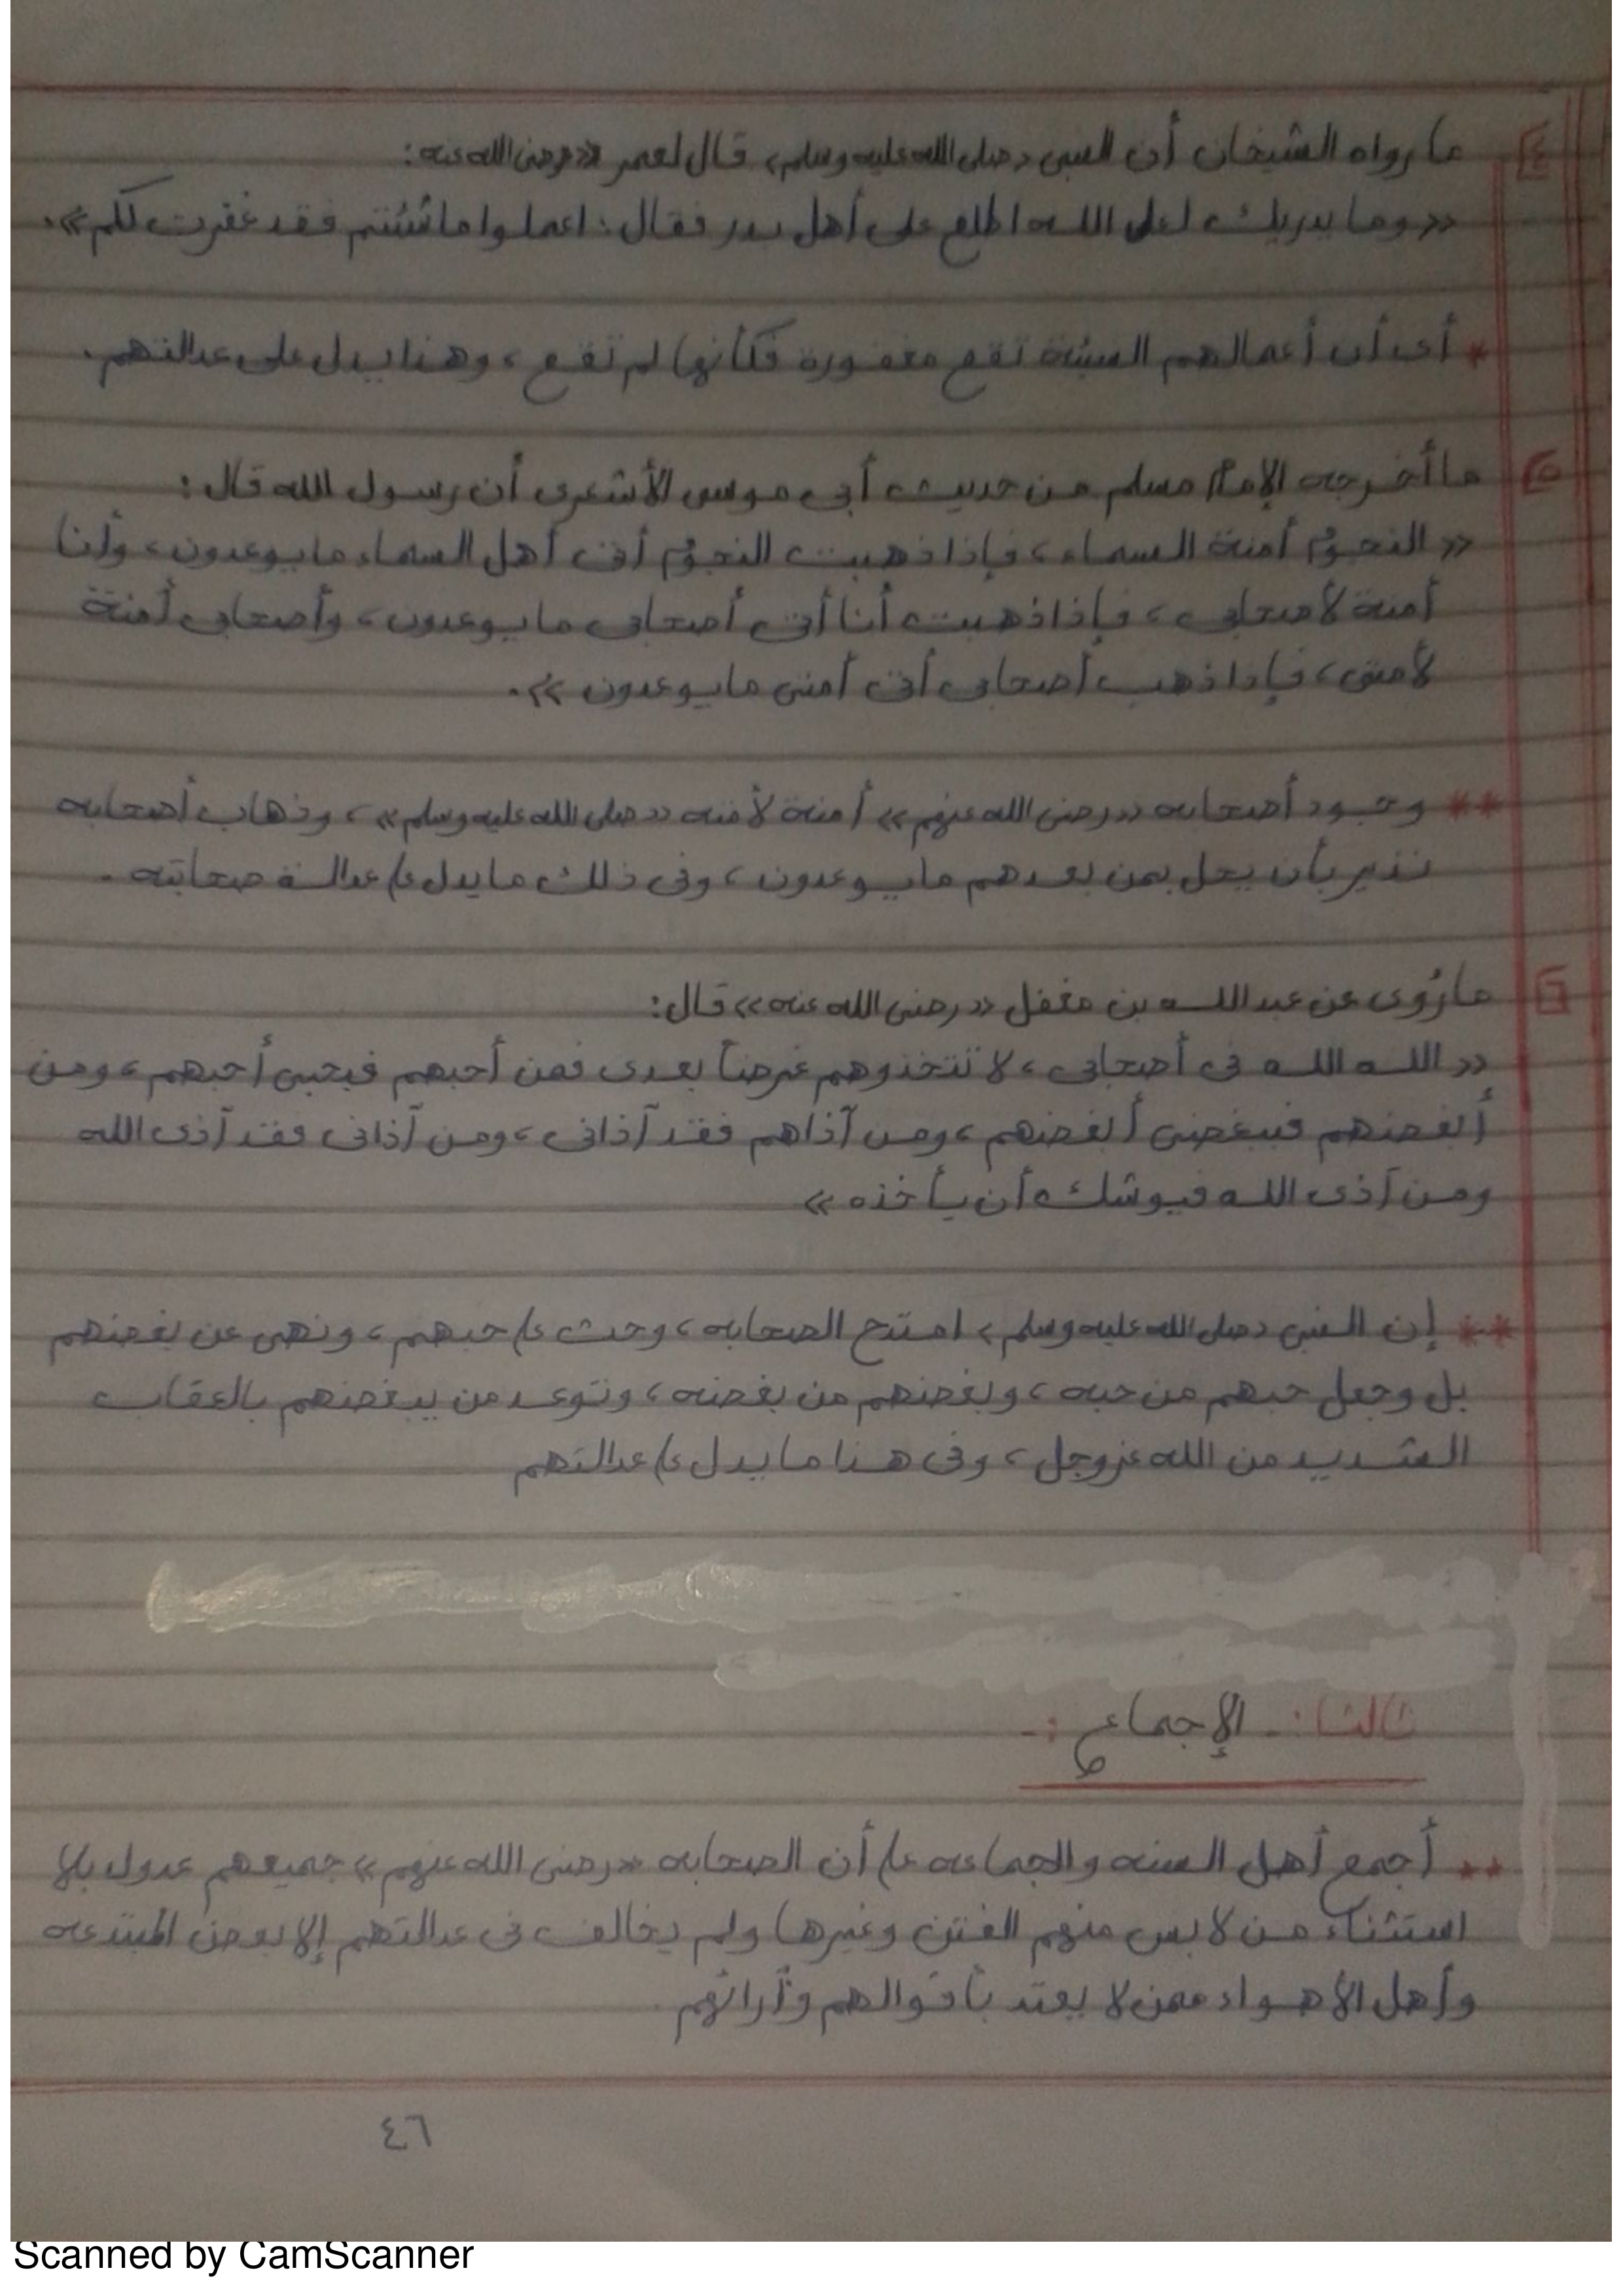 ٤ ما رواه الشيخان أن النبى «صلى الله عليه وسلم» قال لعمر «رضى الله عنه:
«وما يدريك لعل الله اطلع على أهل بدر فقال: اعملوا ما شئتم فقد غفرت لكم».
* أى أن أعمالهم السيئة تقع مغفورة فكأنها لم تقع، وهذا يدل على عدالتهم.
٥ ما أخرجه الإمام مسلم من حديث أبى موسى الأشعرى أن رسول الله قال:
«النجوم أمنة السماء، فإذا ذهبت النجوم أتى أهل السماء ما يوعدون، وأنا
أمنة لأصحابى، فإذا ذهبت أنا أتى أصحابى ما يوعدون، وأصحابى أمنة
لأمتى، فإذا ذهب أصحابى أتى أمتى ما يوعدون».
** وجود أصحابه «رضى الله عنهم» أمنة لأمته «صلى الله عليه وسلم»، وذهاب أصحابه
نذير بأن يحل بمن بعدهم ما يوعدون، وفى ذلك ما يدل ع/ عدالة صحابته.
٦ ما رُوى عن عبد الله بن مغفل «رضى الله عنه» قال:
«الله الله فى أصحابى، لا تتخذوهم غرضاً بعدى فمن أحبهم فبحبى أحبهم، ومن
أبغضهم فببغضى أبغضهم، ومن آذاهم فقد آذانى، ومن آذانى فقد آذى الله
ومن آذى الله فيوشك أن يأخذه»
** إن النبى «صلى الله عليه وسلم» امتدح الصحابه، وحث ع/ حبهم، ونهى عن بغضهم
بل وجعل حبهم من حبه، وبغضهم من بغضه، وتوعد من يبغضهم بالعقاب
الشديد من الله عز وجل، وفى هذا ما يدل ع/ عدالتهم
ثالثا:- الإجماع:-
** أجمع أهل السنه والجماعه ع/ أن الصحابه «رضى الله عنهم» جميعهم عدول بلا
استثناء من لابس منهم الفتن وغيرها ولم يخالف فى عدالتهم إلا بعض المبتدعه
وأهل الأهواء ممن لا يعتد بأقوالهم وآرائهم
٤٦
Scanned by CamScanner